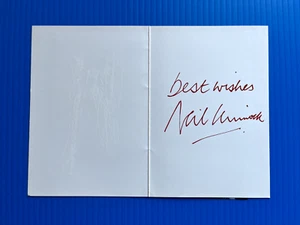 best wishes
Neil Kinnock